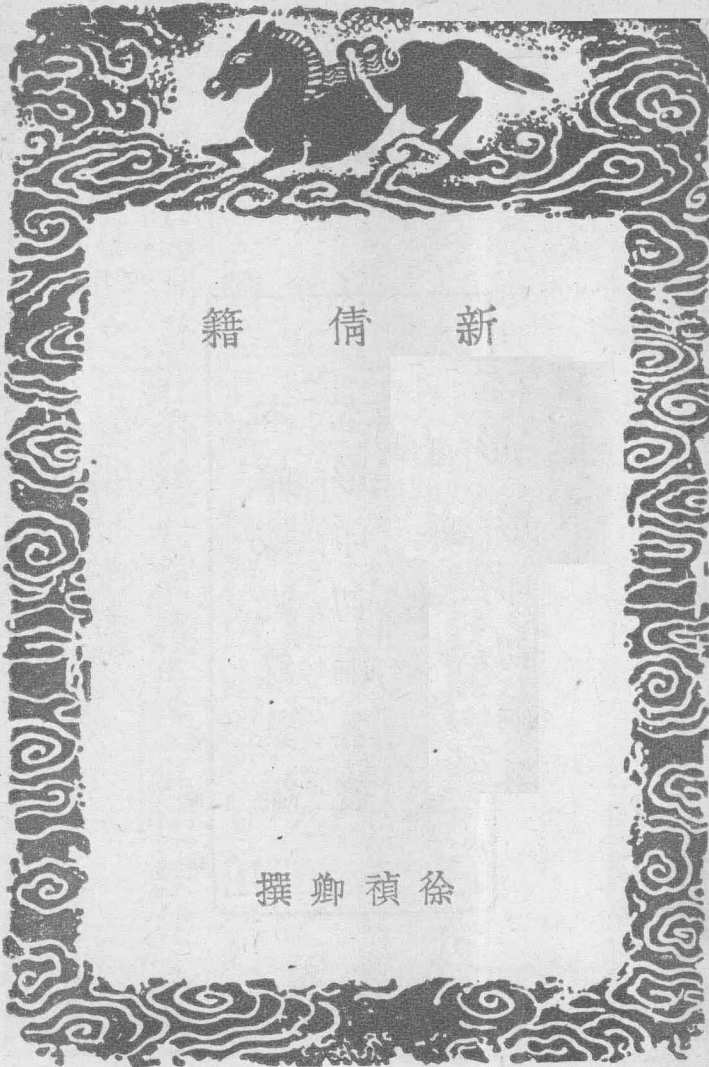 新倩籍
徐禎卿撰